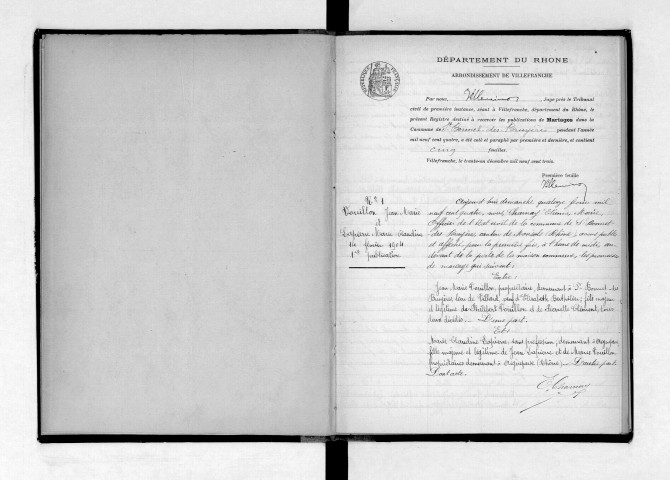 DÉPARTEMENT DU RHONE
ARRONDISSEMENT DE VILLEFRANCHE
Par nous, Juge près le Tribunal
civil de première instance, séant à Villefranche, département du Rhône, le
présent Registre destiné à recevoir les publications de Mariages dans la
Commune de St Bonnet des Bruyères pendant l'année
mil neuf cent quatre, a été coté et paraphé par première et dernière, et contient
cinq feuilles.
Villefranche, le trente-un décembre mil neuf cent trois.
Première feuille
No 1
Jean Marie
et
Lapierre Marie Claudine
14 février 1904
1re publication
Aujourd'hui dimanche quatorze février mil
neuf cent quatre, nous Etienne Maire
Officier de l'Etat civil de la commune de St Bonnet
des Bruyères, canton de Monsols (Rhône), avons publié
et affiché, pour la première fois, à l'heure de midi, au
devant de la porte de la maison commune, les promesses
de mariage qui suivent:
Entre
Jean Marie propriétaire, demeurant à St Bonnet des
Bruyères, lieu de veuf d'Elisabeth fils majeur
et légitime de Philibert et de Pierrette Clément,
décédés. D'une part.
Et
Marie Claudine Lapierre, sans profession, demeurant à
fille majeure et légitime de Jean Lapierre et de Marie
propriétaires demeurant à (Rhône). D'autre part
Dont acte.